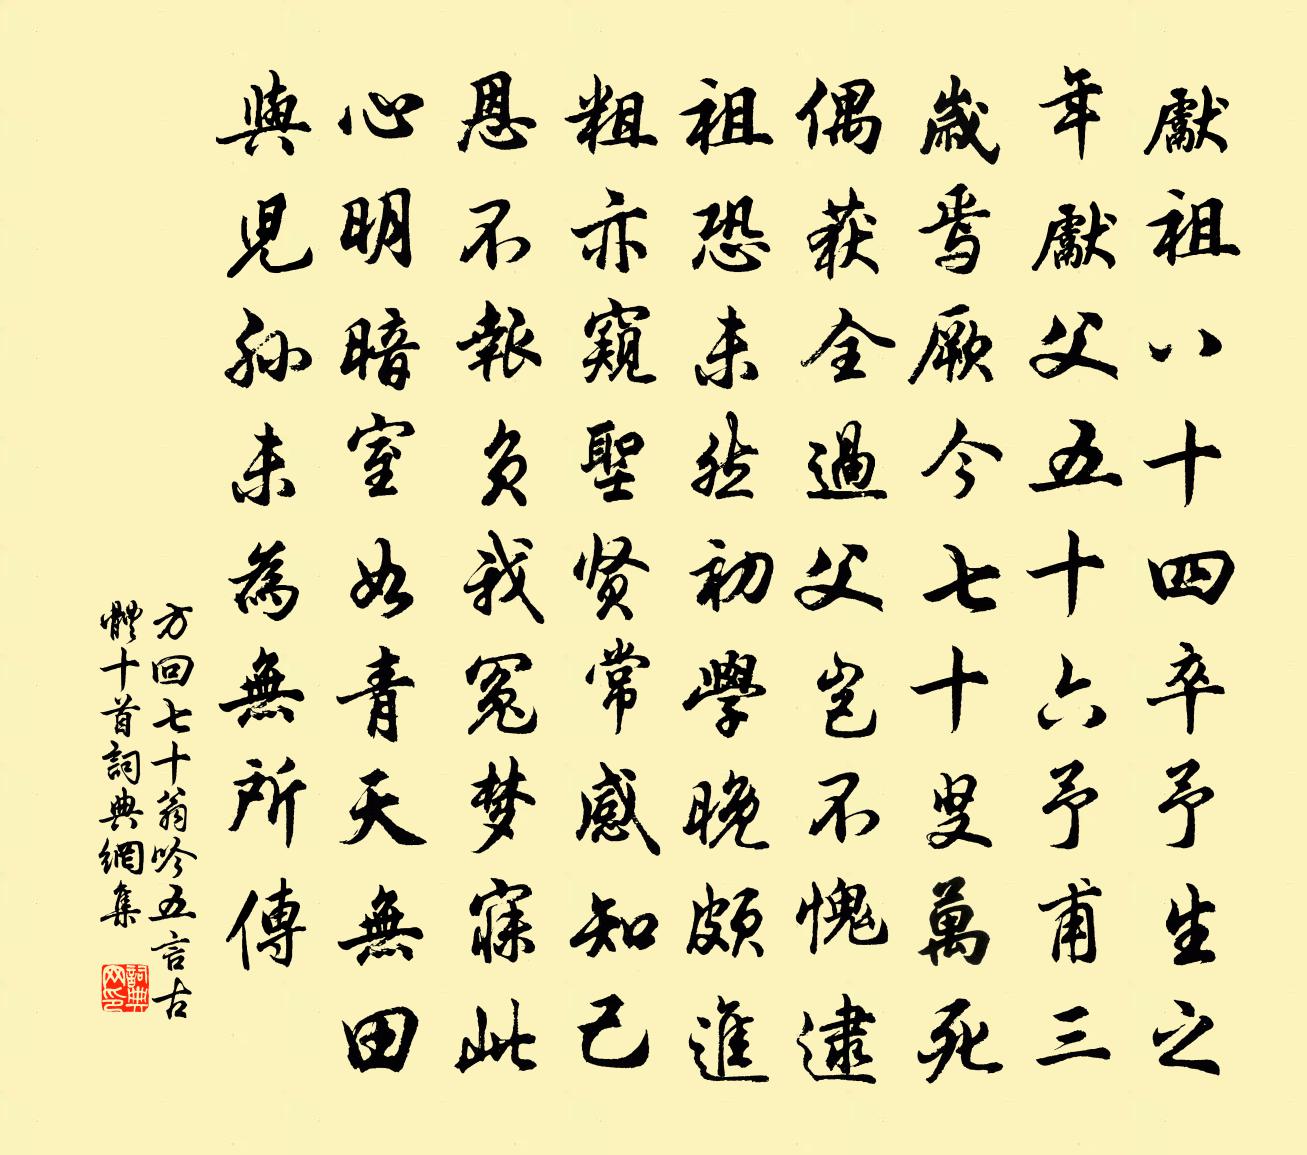 獻祖八十四卒予生之
年獻父五十六予甫三
歲焉厥今七十叟萬死
偶获全過父岂不愧逮
祖恐未然初學晚頗進
粗亦窺聖贤常感知己
恩不報负我冤梦寐此
心明暗室如青天無田
與児孫未為無所傳
方回七十翁吟五言古
體十首詞典網集
詞典
网印